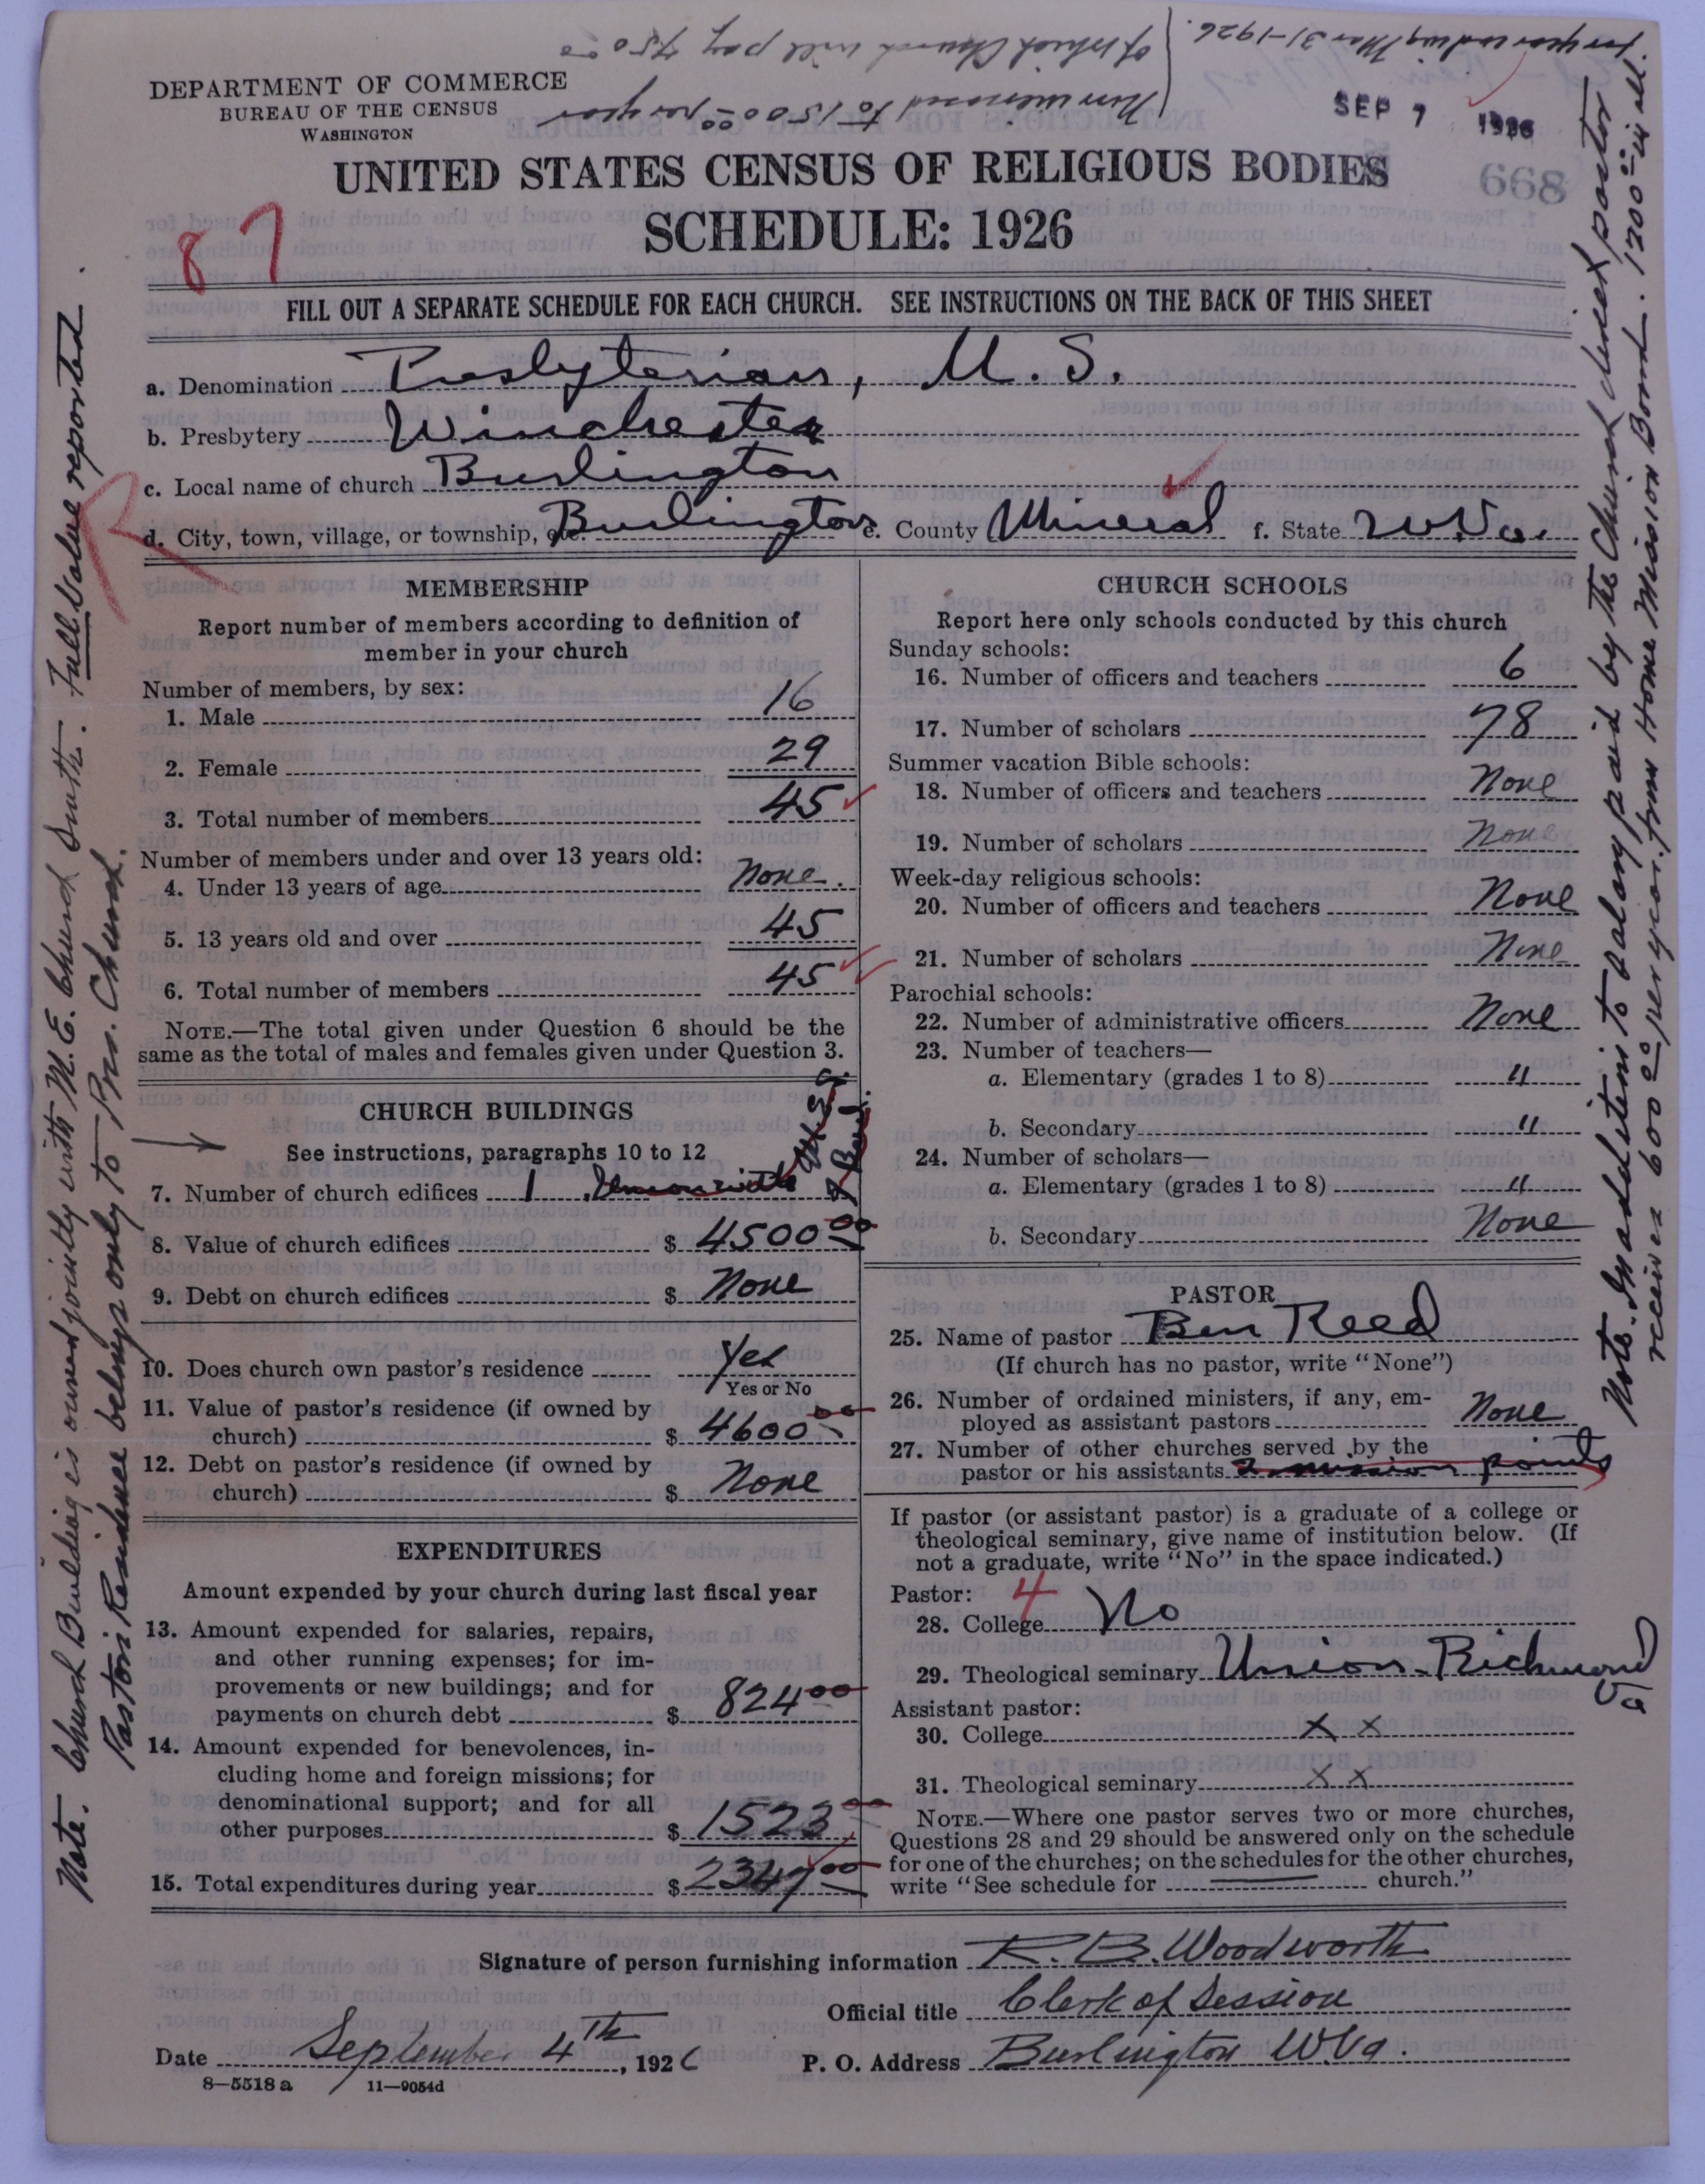 for year ending Mar 31-1926.
of which Church will pay 750.00
Now increased to 1500.00 per year
DEPARTMENT OF COMMERCE
BUREAU OF THE CENSUS
WASHINGTON
SEP 7 1926
668
UNITED STATES CENSUS OF RELIGIOUS BODIES
SCHEDULE: 1926
87
FILL OUT A SEPARATE SCHEDULE FOR EACH CHURCH. SEE INSTRUCTIONS ON THE BACK OF THIS SHEET
a. Denomination Presbyterian, U. S.
b. Presbytery Winchester
c. Local name of church Burlington
d. City, town, village, or township, etc. Burlington e. County Mineral f. State W.Va.
MEMBERSHIP
Report number of members according to definition of
member in your church
Number of members, by sex:
1. Male 16
2. Female 29
3. Total number of members 45
Number of members under and over 13 years old:
4. Under 13 years of age None.
5. 13 years old and over 45
6. Total number of members 45
NOTE.—The total given under Question 6 should be the
same as the total of males and females given under Question 3.
CHURCH BUILDINGS
See instructions, paragraphs 10 to 12
7. Number of church edifices 1 Union with M.E.S.
8. Value of church edifices $ 4500.00
9. Debt on church edifices $ None
10. Does church own pastor's residence Yes
Yes or No
11. Value of pastor's residence (if owned by
church) $ 4600.00
12. Debt on pastor's residence (if owned by
church) $ None
EXPENDITURES
Amount expended by your church during last fiscal year
13. Amount expended for salaries, repairs,
and other running expenses; for im-
provements or new buildings; and for
payments on church debt $ 824.00
14. Amount expended for benevolences, in-
cluding home and foreign missions; for
denominational support; and for all
other purposes $ 1523.00
15. Total expenditures during year $ 2347.00
CHURCH SCHOOLS
Report here only schools conducted by this church
Sunday schools:
16. Number of officers and teachers 6
17. Number of scholars 78
Summer vacation Bible schools:
18. Number of officers and teachers None
19. Number of scholars None
Week-day religious schools:
20. Number of officers and teachers None
21. Number of scholars None
Parochial schools:
22. Number of administrative officers None
23. Number of teachers—
a. Elementary (grades 1 to 8) "
b. Secondary "
24. Number of scholars—
a. Elementary (grades 1 to 8) "
b. Secondary None
PASTOR
25. Name of pastor Ben Reed
(If church has no pastor, write "None")
26. Number of ordained ministers, if any, em-
ployed as assistant pastors None
27. Number of other churches served by the
pastor or his assistants 2 mission points
If pastor (or assistant pastor) is a graduate of a college or
theological seminary, give name of institution below. (If
not a graduate, write "No" in the space indicated.)
Pastor: 4
28. College No
29. Theological seminary Union Richmond Va
Assistant pastor:
30. College x x
31. Theological seminary x x
NOTE.—Where one pastor serves two or more churches,
Questions 28 and 29 should be answered only on the schedule
for one of the churches; on the schedules for the other churches,
write "See schedule for ——— church."
Signature of person furnishing information R. B. Woodworth
Official title Clerk of Session
Date September 4th, 1926 P. O. Address Burlington W.Va.
8—5518 a 11—9054d
Note. Church Building is owned jointly with M.E. Church South. Full Value reported.
Pastors Residence belongs only to Pres. Church.
Note. In addition to salary paid by the Church direct pastor
receives 600.00 per year from Home Mission Board. 1200.00 in all.